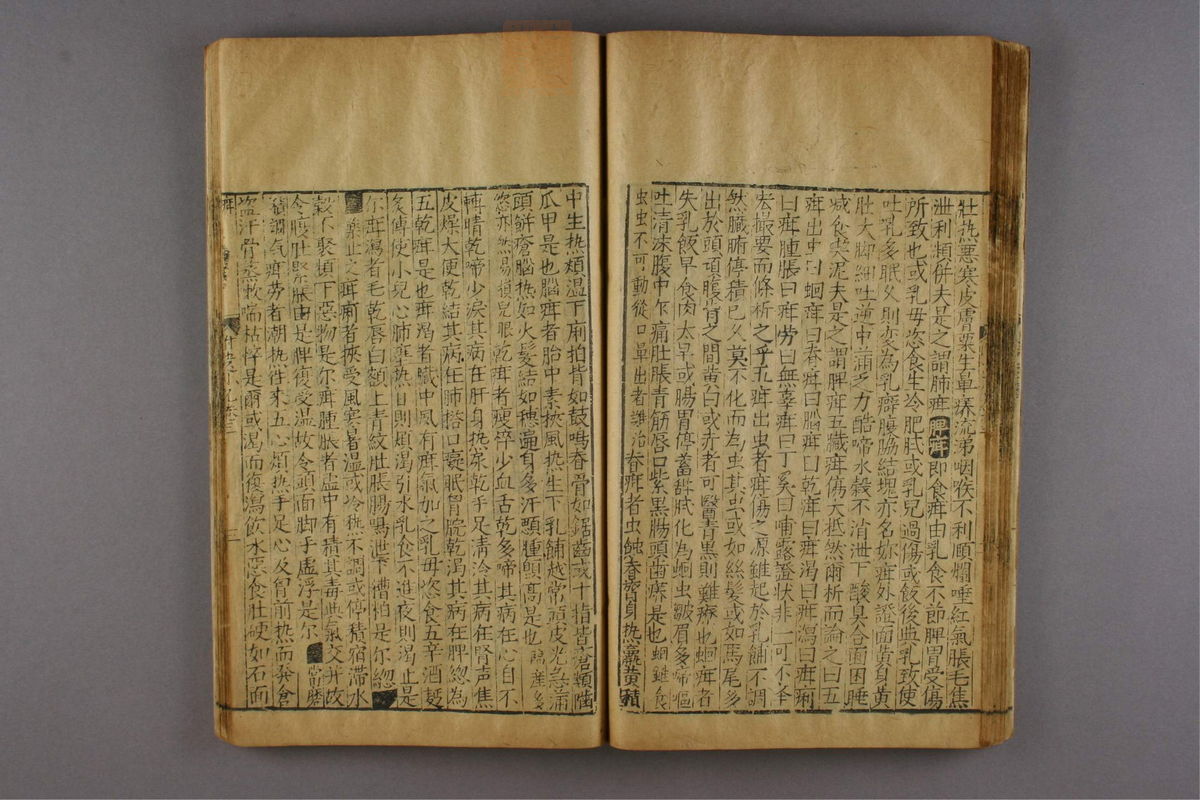 壯热悪寒皮膚粟生單癢流涕咽喉不利頥爛唾紅氣脹毛焦
泄利頻併夫是之謂肺疳脾疳即食疳由乳食不節脾胃受傷
所致也或乳毋恣食生冷肥膩或乳兒過傷或飯後與乳致使
吐乳多眠乆則变為乳癖腹脇結塊亦名妳疳外證面黄身黄
肚大脚細吐逆中滿乏力酷啼水榖不消泄下酸臭合面困睡
减食喫泥夫是之謂脾疳五臟疳傷大抵然爾析而論之曰五
疳出虫曰蛔疳曰脊疳曰腦疳曰乾疳曰疳渴曰疳瀉曰疳痢
曰疳腫脹曰疳劳曰無辜疳曰丁奚曰哺露證狀非一可不全
宏撮要而條析之乎五疳出虫者疳傷之原雖起於乳餔不調
然臟腑停積已乆莫不化而為虫其虫或如絲髮或如馬尾多
出於頭項腹背之間黄白或赤者可醫青黒則難療也蛔疳者
失乳飯早食肉太早或腸胃停蓄甜膩化為蛔虫皺眉多啼嘔
吐清沫腹中乍痛肚脹青筋唇口紫黒腸頭齒癢是也蛔雖食
虫虫不可動從口鼻出者難治脊疳者虫蝕脊膂身热羸黄積
中生热煩温下痢拍背如鼓鳴脊骨如鋸齒或十指皆瘡頻囓
爪甲是也腦疳者胎中素挾風热生下乳餔越常頭皮光急滿
頭餅瘡腦热如火髮結如穗遍身多汗顋腫顖髙是也腦疳多
乾疳者瘦瘁少血舌乾多啼其病在心目不
轉睛乾啼少淚其病在肝身热尿乾手足清冷其病在腎声焦
皮燥大便乾結其病在肺搭口癡眠胷脘乾渴其病在脾緫為
五乾疳是也疳渴者臟中風有疳氣加之乳毋恣食五辛酒麪
炙煿使小兒心肺壅热日則煩渴引水乳食不進夜則渴止是
尔疳瀉者毛乾唇白額上青紋肚脹腸鳴泄下糟粕是尔緫
疳痢者挾受風寒暑温或冷热不調或停積宿滯水
榖不聚頻下惡物是尔疳腫脹者虚中有積其毒與氣交并故
令腹肚緊脹由是脾復受温故令頭面脚手虚浮是尔當磨
積調氣疳劳者潮热往來五心煩热手足心及胷前热而發倉
盗汗骨蒸敕喘枯悴是爾或渴而復瀉飲水惡食肚硬如石面